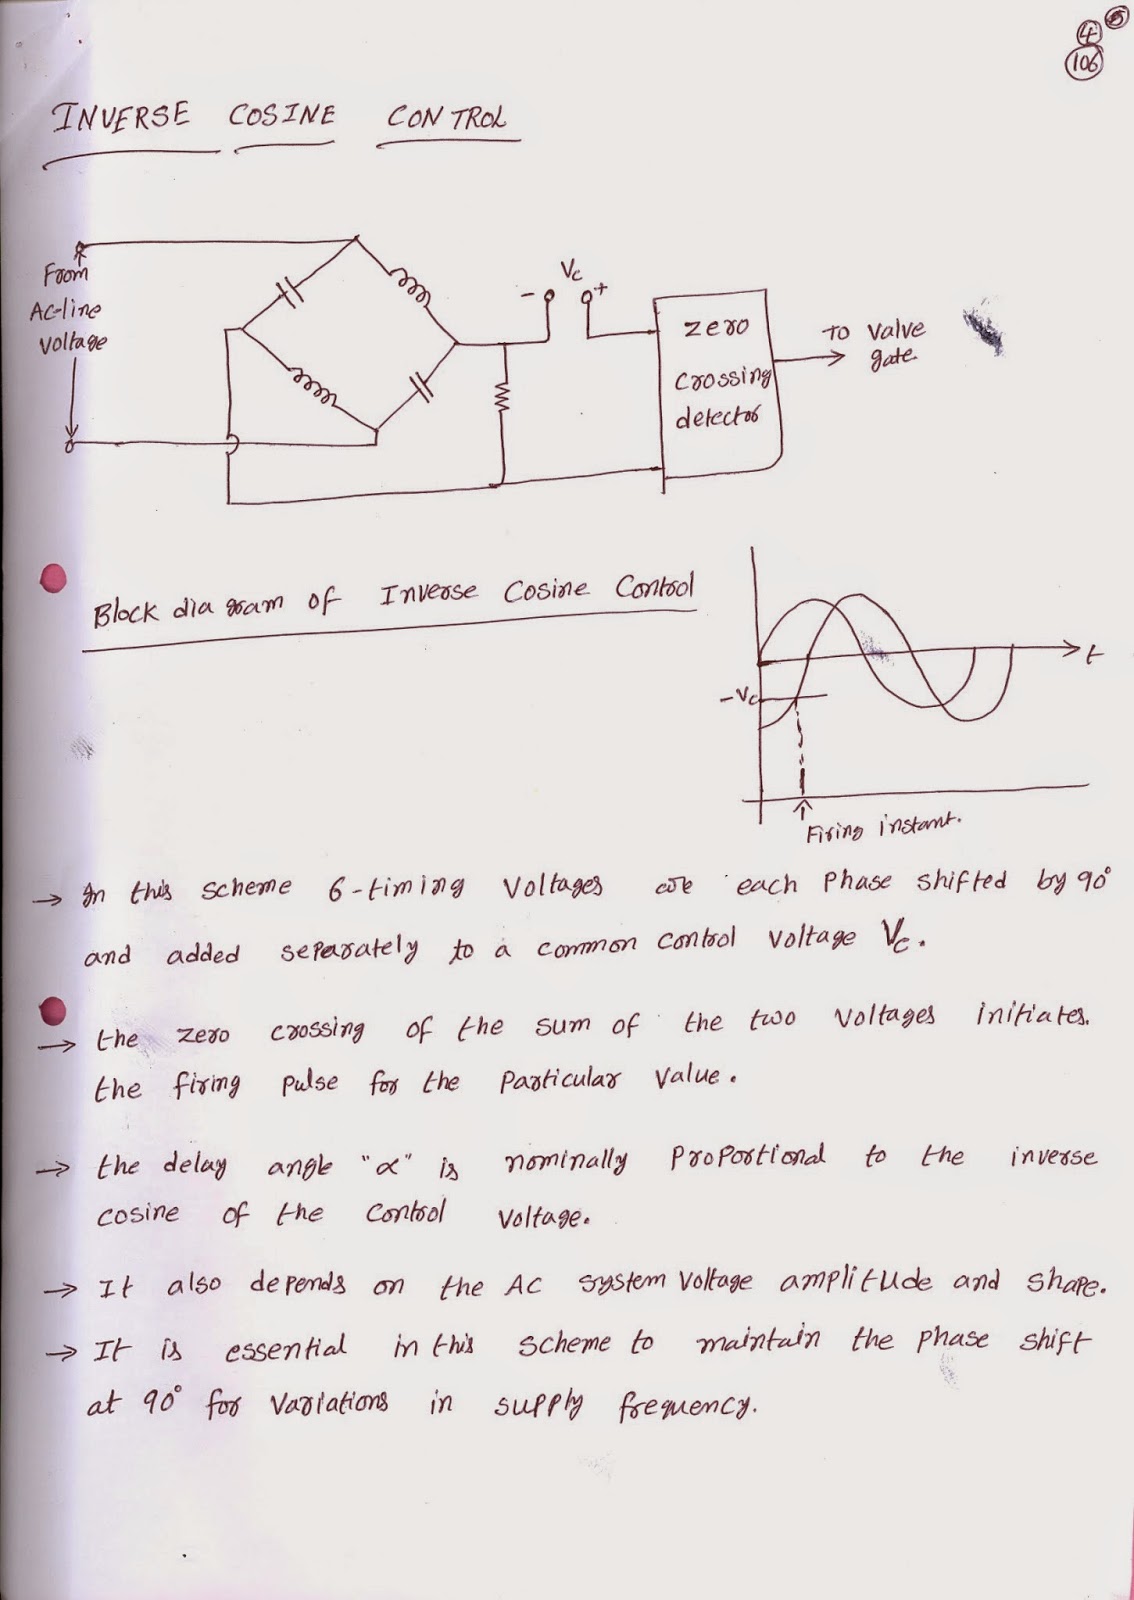 4
106
INVERSE COSINE CONTROL
From
AC-line
voltage
Vc
- +
zero
crossing
detector
To valve
gate
Block diagram of Inverse Cosine Control
t
-Vc
Firing instant.
→ In this scheme 6-timing voltages are each phase shifted by 90°
and added separately to a common control voltage Vc.
→ the zero crossing of the sum of the two voltages initiates.
the firing pulse for the particular value.
→ the delay angle "α" is nominally proportional to the inverse
cosine of the control voltage.
→ It also depends on the AC system voltage amplitude and shape.
→ It is essential in this scheme to maintain the phase shift
at 90° for variations in supply frequency.